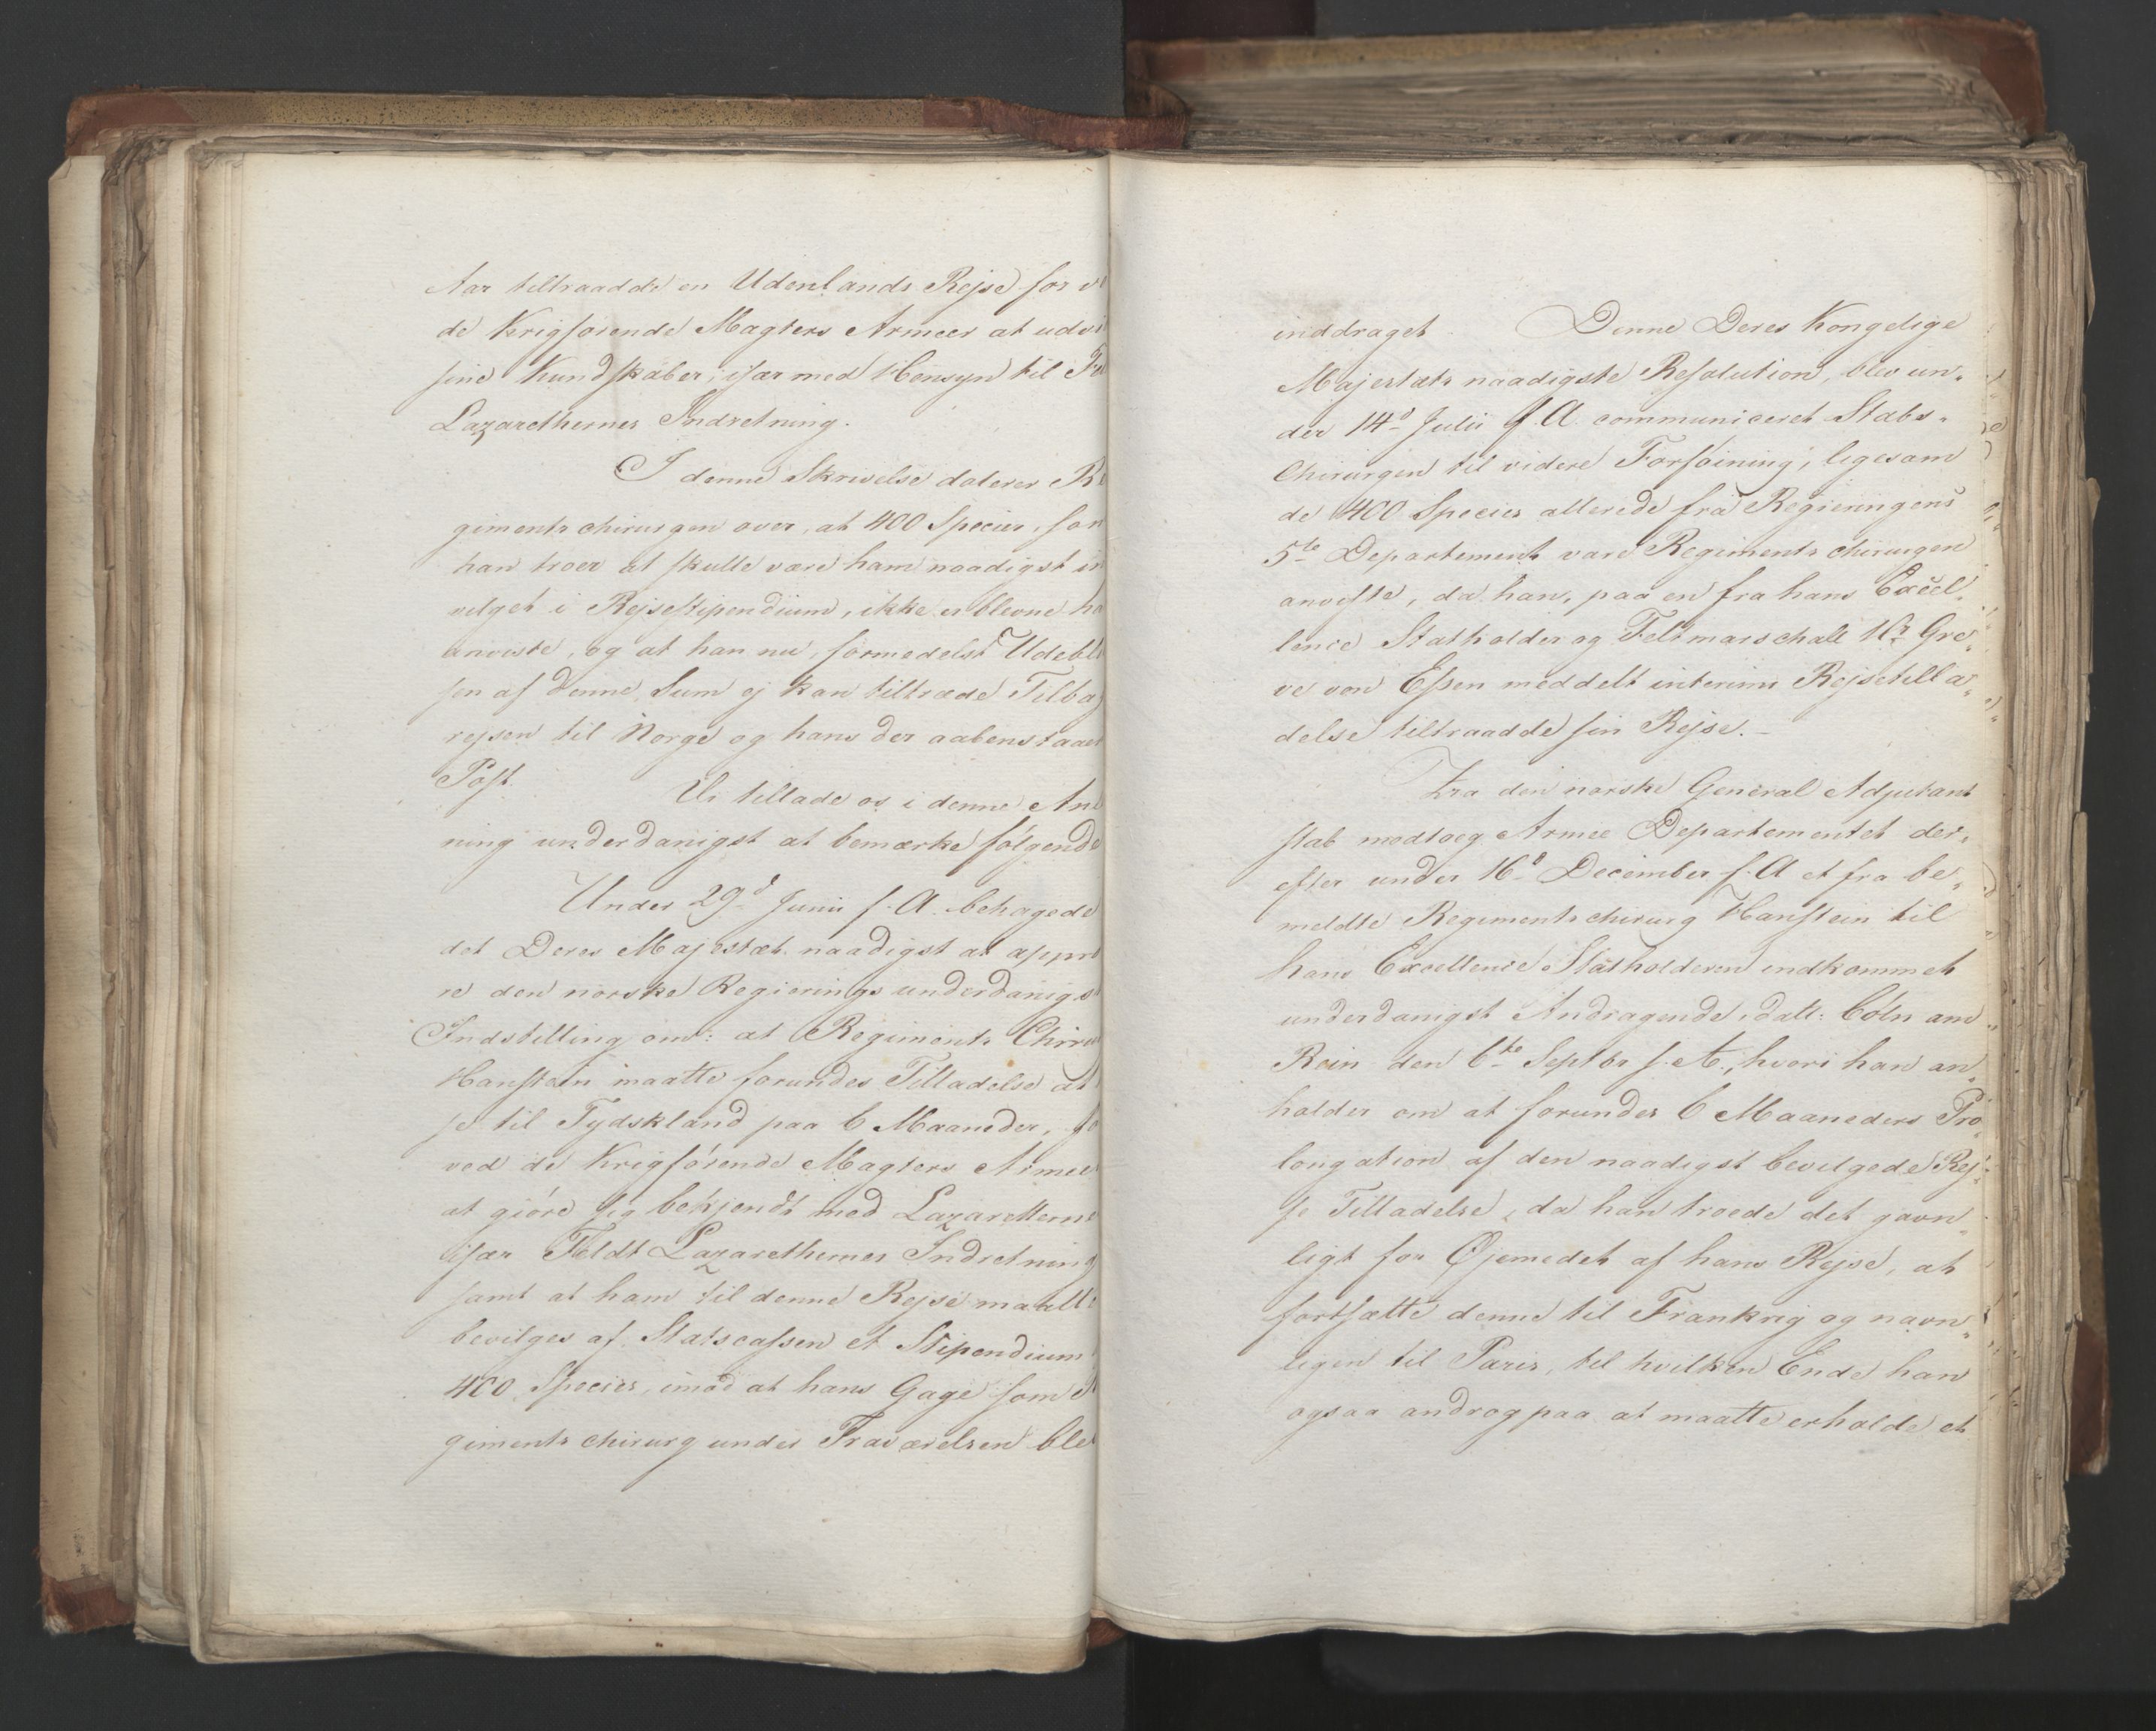 Aar tiltraadde en Udenlands Rejse for v
de Krigførende Magters Armeer at udvi
sine Kundskaber, især med Hensyn til Fel
Lazarethernes Indretning.
I denne Skrivelse dolerer Re
gimentschirurgen over, at 400 Species, som
han troer at skulle være ham naadigst in
vilget i Rejsestipendium, ikke er blevne ha
anviste, og at han nu, formedelst Udeble
sen af denne Sum ej kan tiltræde Tilbag
rejsen til Norge og hans der aabenstaaen
Post.
Vi tillade os i denne Anl
ning underdanigst at bemærke følgende
Under 29d Junii f. A. behagede
det Deres Majestæt naadigst at appro
re den norske Regierings underdanigst
Indstilling om: at Regiments Chirur
Hanstein maatte forundes Tilladelse at
se til Tydskland paa 6 Maaneder, fo
ved de Krigførende Magters Armee
at giøre sig bekjendt med Lazaretterne
især Feldt Lazarethernes Indretning
samt at ham til denne Rejse maatte
bevilges af Statscassen et Stipendium
400 Species, imod at hans Gage som R
giments chirurg under Fraværelsen blev
inddraget. Denne Deres Kongelige
Majestæts naadigste Resolution, blev un„
der 14d Julii f. A. communiceret Stabs„
Chirurgen til videre Forføining, ligesom
de 400 Species allerede fra Regieringens
5te Departement vare Regiments chirurgen
anviste, da han, paa en fra hans Excel„
lence Statholder og Feltmarschall Hr Gre„
ve von Essen meddelt interims Rejsetilla„
delse tiltraadde sin Rejse.
Fra den norske General Adjutant
stab modtoeg Armee Departementet der„
efter under 16d December f. A et fra be„
meldte Regimentschirurg Hanstein til
hans Excellence Statholderen indkommet
underdanigst Andragende, datt: Cöln am
Rein den 6te Septbr f. A., hvori han an„
holder om at forundes 6 Maaneders Pro„
longation af den naadigst bevilgede Rej„
se Tilladelse, da han troede det gavn„
ligt for Øjemedet af hans Rejse, at
fortsætte denne til Frankrig og navn„
ligen til Paris, til hvilken Ende han
ogsaa androg paa at maatte erholde et